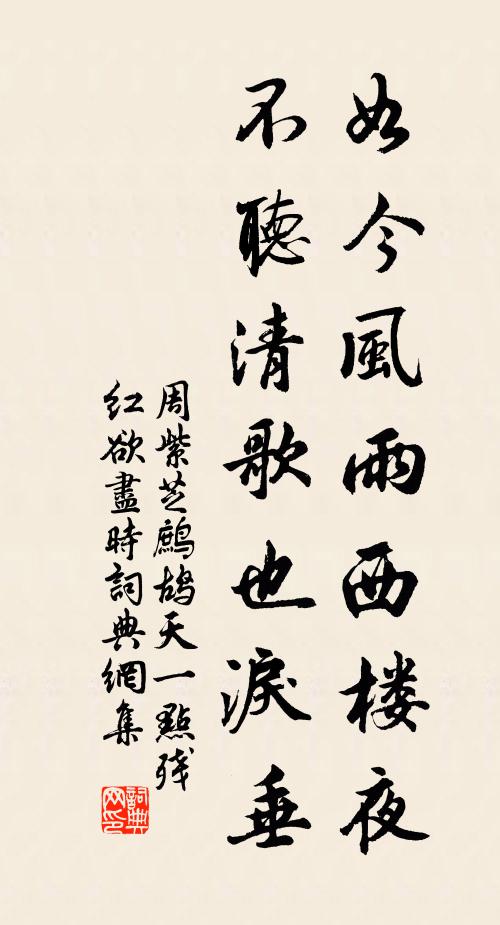 如今風雨西楼夜
不聽清歌也淚垂
周紫芝鷓鴣天一點残
紅欲盡時詞典網集
詞典
网印